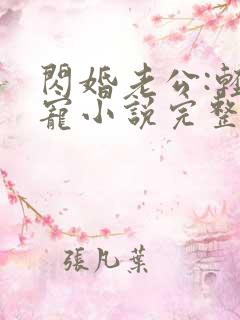 閃婚老公:輕
寵小說完整
張凡葉